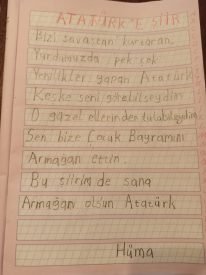 ATATÜRK'E ŞİİR
Bizi savaştan kurtaran,
Yurdumuzda pek çok
Yenilikler yapan Atatürk
Keşke seni görebilseydim
O güzel ellerinden tutabilseydim
Sen bize Çocuk Bayramını
Armağan ettin.
Bu şiirim de sana
Armağan olsun Atatürk
Hüma